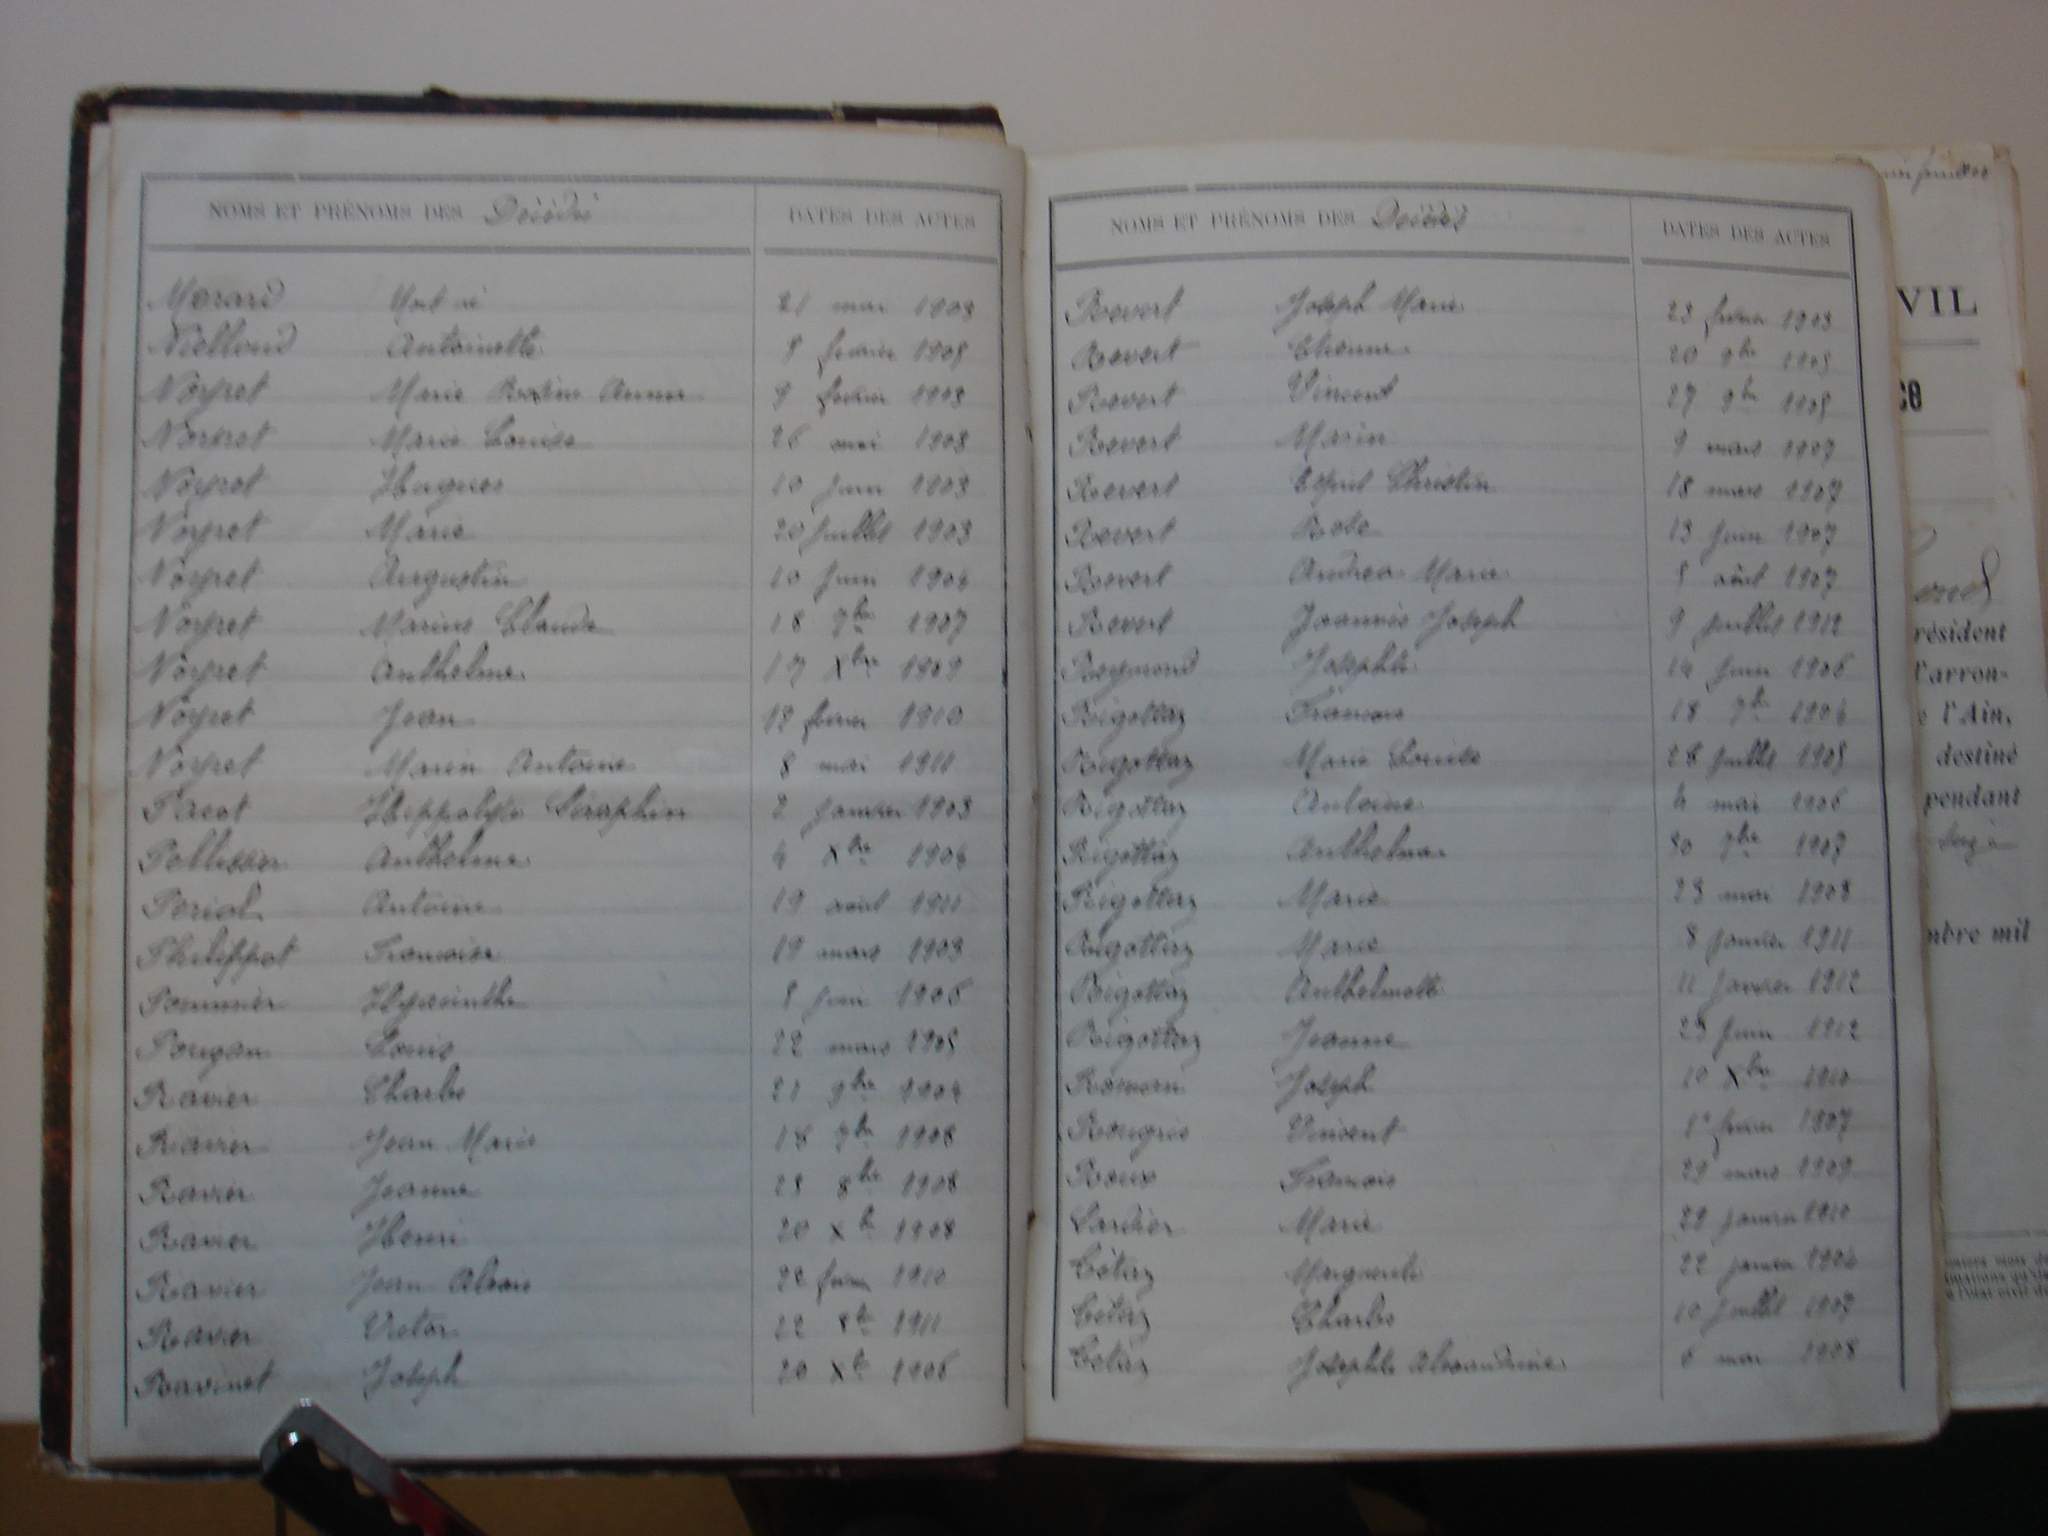 NOMS ET PRÉNOMS DES Décédés DATES DES ACTES
Morard Mort né 21 mai 1908
Niolloud Antoinette 9 février 1905
Noyret Marie 9 février 1908
Noyret Marie Louise 26 mai 1908
Noyret Hugues 10 juin 1903
Noyret Marie 20 juillet 1903
Noyret Augustin 10 juin 1904
Noyret Marius Claude 18 7bre 1907
Noyret Anthelme 17 Xbre 1909
Noyret Jean 12 février 1910
Noyret Marin Antoine 8 mai 1911
Pacot Hippolyte Séraphin 2 janvier 1903
Pellissier Anthelme 4 Xbre 1904
Perial Antoine 19 août 1911
Philippot Françoise 19 mars 1903
Pommier Hyacinthe 8 juin 1906
Louis 22 mars 1905
Ravier Charles 21 9bre 1904
Ravier Jean Marie 18 7bre 1908
Ravier Jeanne 28 8bre 1908
Ravier Henri 20 Xbre 1908
Ravier Jean 22 février 1910
Ravier Victor 22 8bre 1911
Ravinet Joseph 20 Xbre 1906
NOMS ET PRÉNOMS DES Décédés DATES DES ACTES
Revert Joseph Marie 23 février 1903
Revert Etienne 20 9bre 1905
Revert Vincent 27 9bre 1905
Revert Marin 9 mars 1907
Revert Christin 18 mars 1907
Revert Rose 13 juin 1907
Revert Andréa Marie 5 août 1907
Revert Joannès Joseph 9 juillet 1912
Reymond Josephte 14 juin 1906
Rigottaz François 18 7bre 1904
Rigottaz Marie Louise 28 juillet 1905
Rigottaz Antoine 4 mai 1906
Rigottaz Anthelme 30 7bre 1907
Rigottaz Marie 23 mai 1908
Rigottaz Marie 8 janvier 1911
Rigottaz Anthelmette 11 janvier 1912
Rigottaz Jeanne 23 juin 1912
Romain Joseph 10 Xbre 1910
Rougris Vincent 1er février 1907
Roux François 29 mars 1909
Sardier Marie 29 janvier 1910
Tétaz Marguerite 22 janvier 1904
Tétaz Charles 10 juillet 1907
Tétaz Josephte Alexandrine 6 mai 1908
VIL
ce
résident
l'arron-
l'Ain,
destiné
pendant
mbre mil